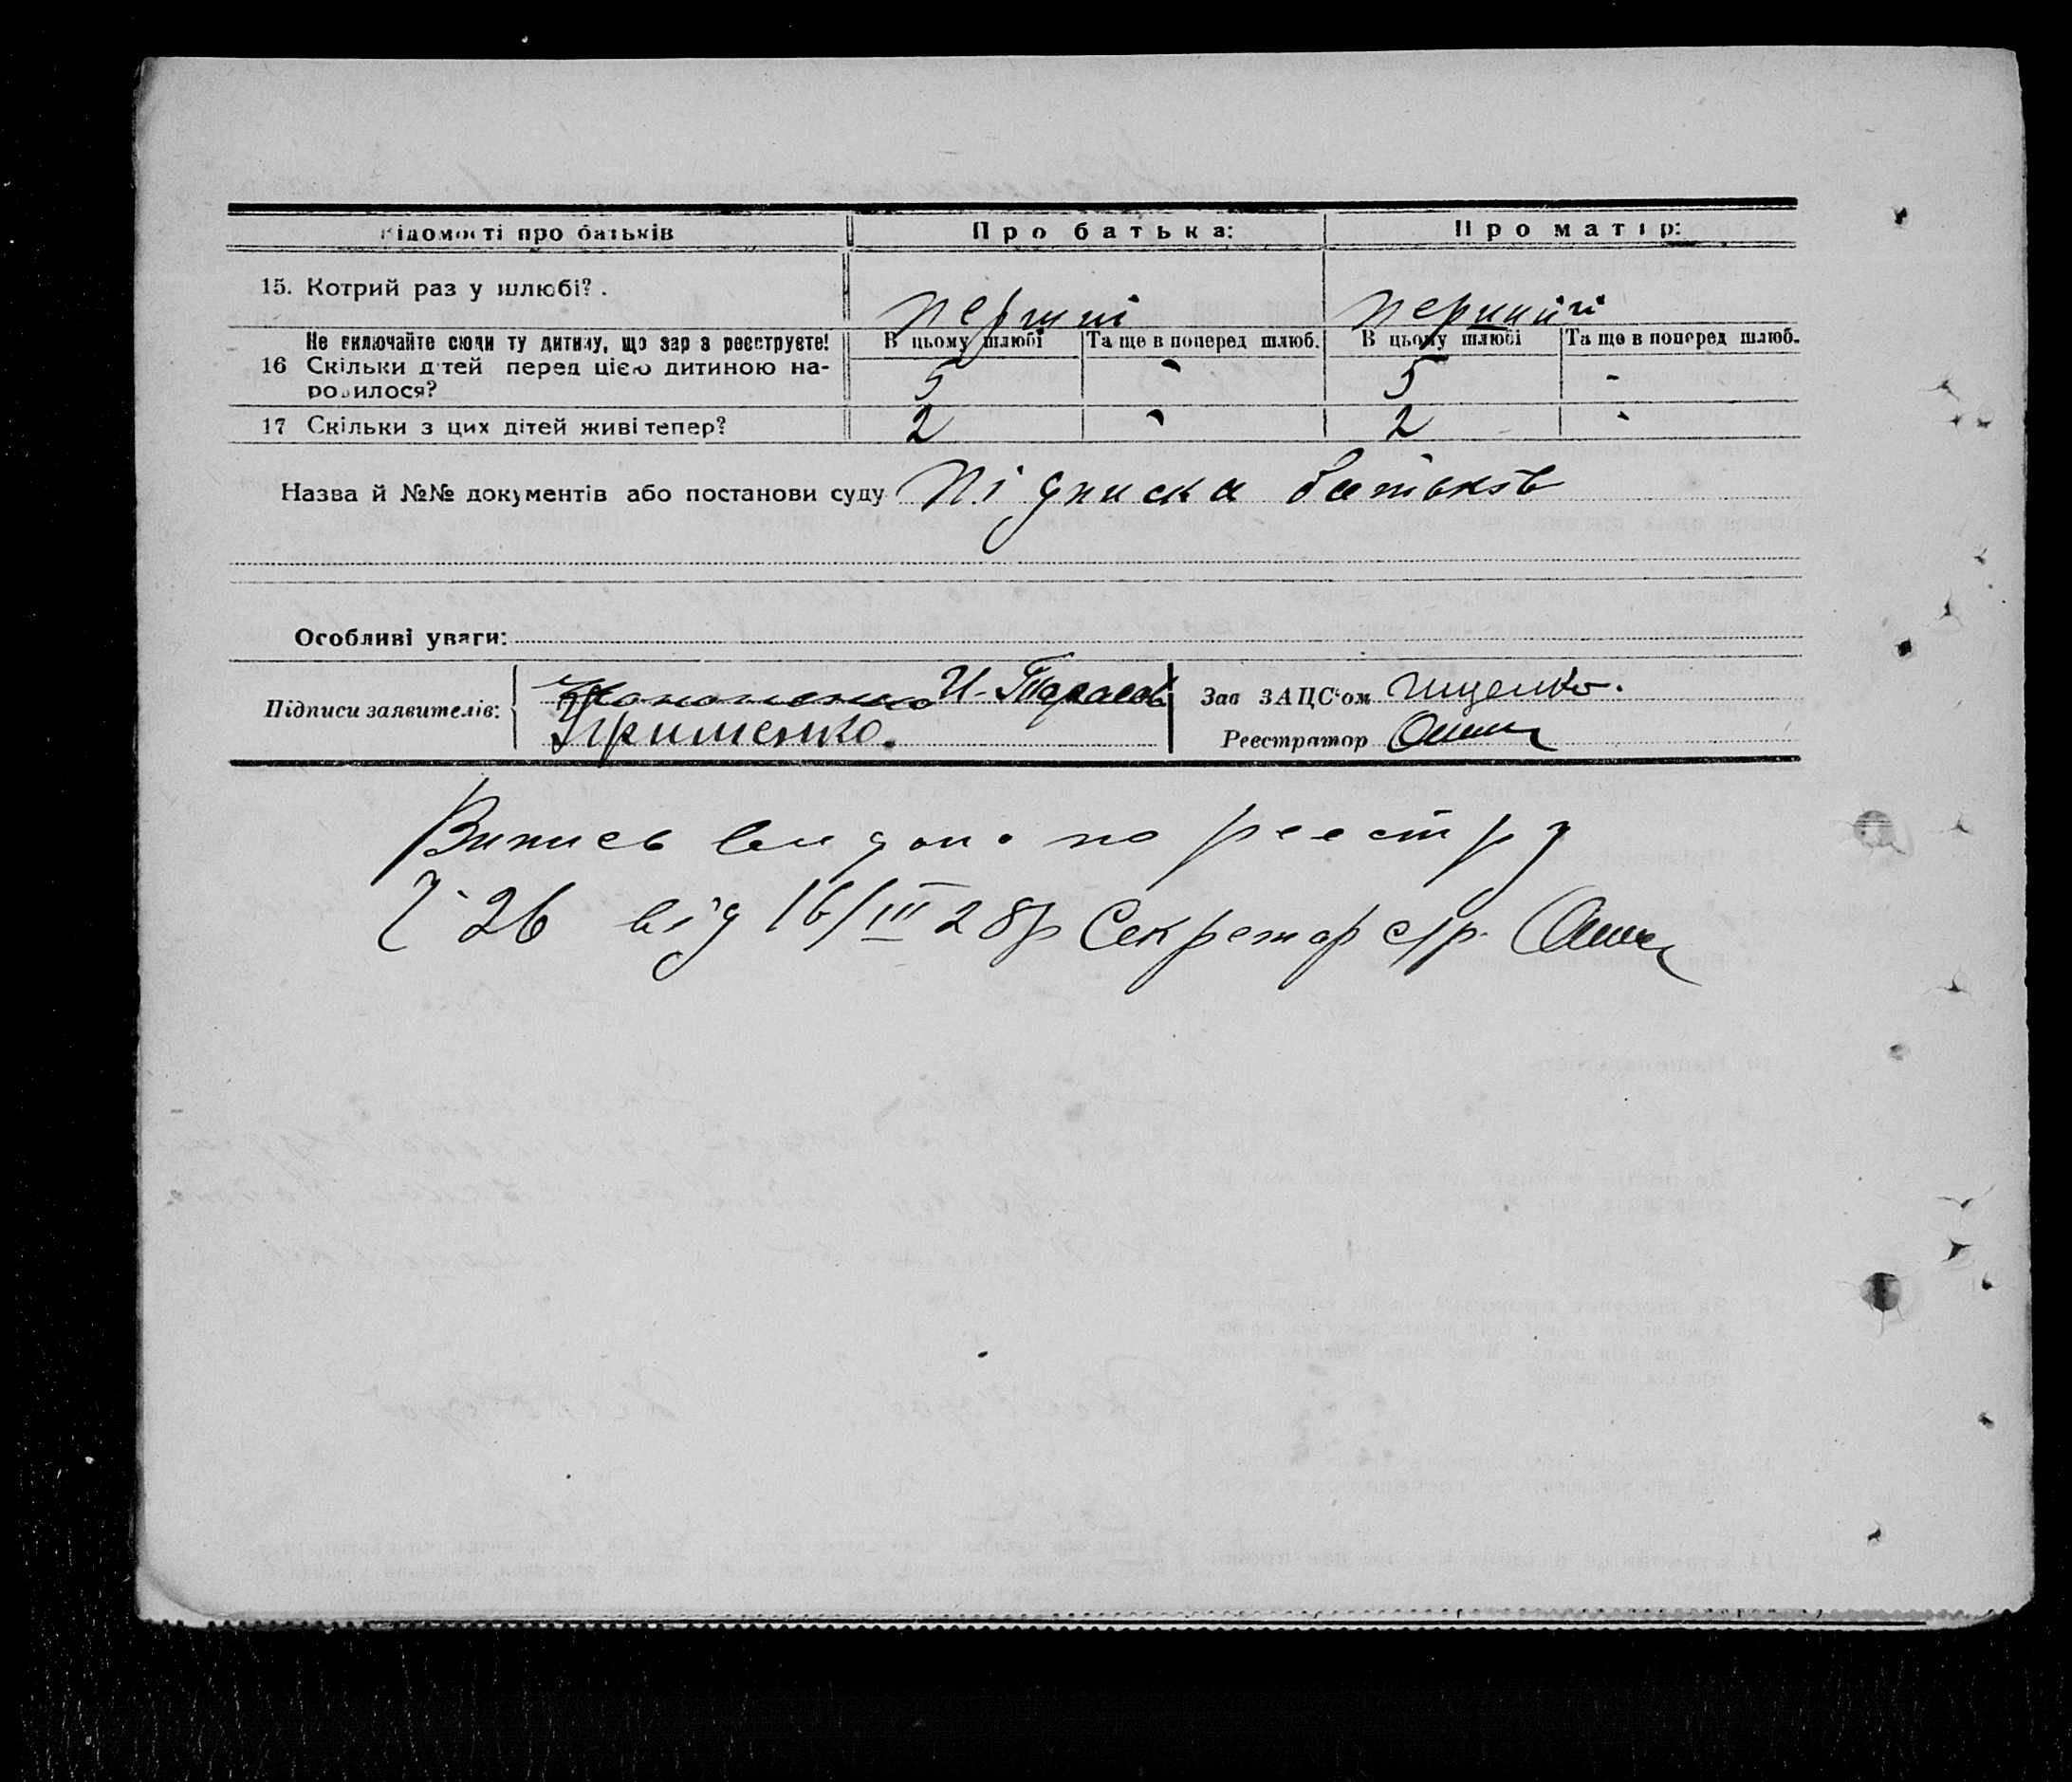 Відомості про батьків Про батька: Про матір:
15. Котрий раз у шлюбі? . перший перший
Не включайте сюди ту дитину, що зараз реєструєте! В цьому шлюбі Та ще в поперед шлюб. В цьому шлюбі Та ще в поперед шлюб.
16 Скільки дітей перед цією дитиною на-
родилося? 5 - 5 -
17 Скільки з цих дітей живі тепер? 2 - 2 -
Назва й №№ документів або постанови суду Підписка батьків
Особливі уваги:
Підписи заявителів: И. Тарасов Зав ЗАЦС'ом Іщенко.
Ярименко. Реєстратор
Випись видано по реєстру
Ч 26 від 16/III 28р Секретар с/р.